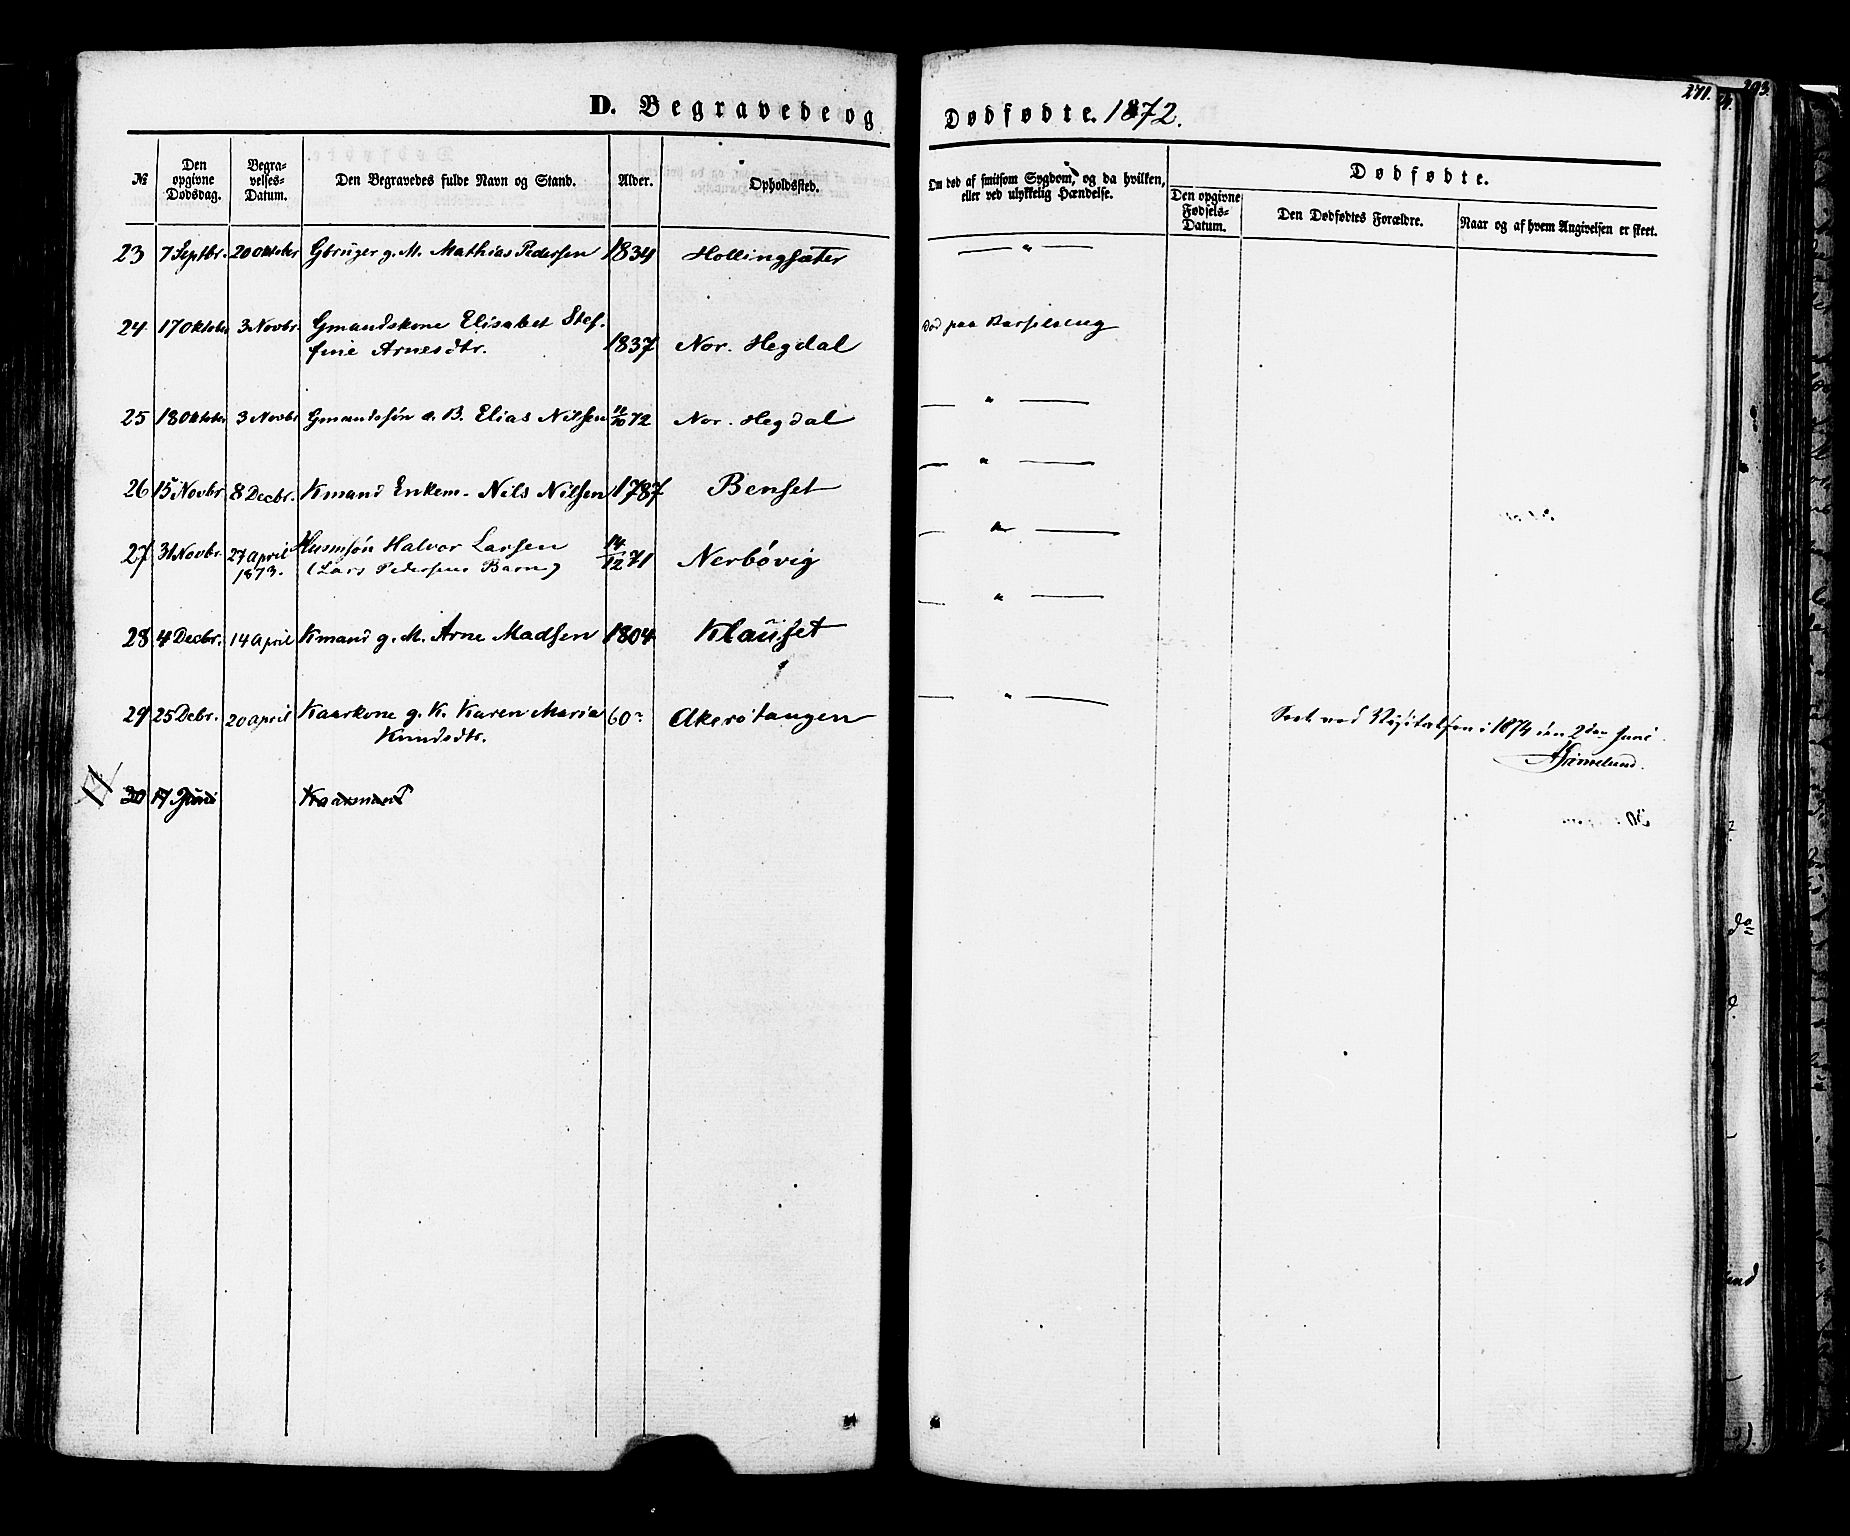 D. Begravede og Dødfødte. 1872.
271.
№ Den opgivne Dødsdag. Begravelses-Datum. Den Begravedes fulde Navn og Stand. Alder. Opholdssted. Om død af smitsom Sygdom, og da hvilken, eller ved ulykkelig Hændelse. Dødfødte.
Den opgivne Fødsels-Datum. Den Dødfødtes Forældre. Naar og af hvem Angivelsen er skeet.
23 7 Septbr. 20 Oktober Gbruger g. M. Mathias Pedersen 1834 Hollingsæter — " —
24 17 Oktober 3 Novbr. Gmandskone Elisabet Stef-
fine Arnesdtr. 1837 Nor. Hegdal Død paa Barselseng
25 18 Oktober 3 Novbr Gmandssøn a. B. Elias Nilsen 11/10 72 Nor. Hegdal — " —
26 15 Novbr 8 Decbr. Kmand Enkem. Nils Nilsen 1787 Benset — " —
27 31 Novbr. 27 April 1873. Husmsøn Halvor Larsen
(Lars Pedersens Barn) 14/12 71 Nerbøvig — " —
28 4 Decbr. 14 April Kmand g. M. Arne Madsen 1804 Klauset — " —
29 25 Debr. 20 April Kaarkone g. K. Karen Maria
Knudsdtr. 60 Akerøtangen — " —
Seet ved Visitatsen i 1874 den 2den Juni
Grimelund.
30 17 Juni Kaarmand